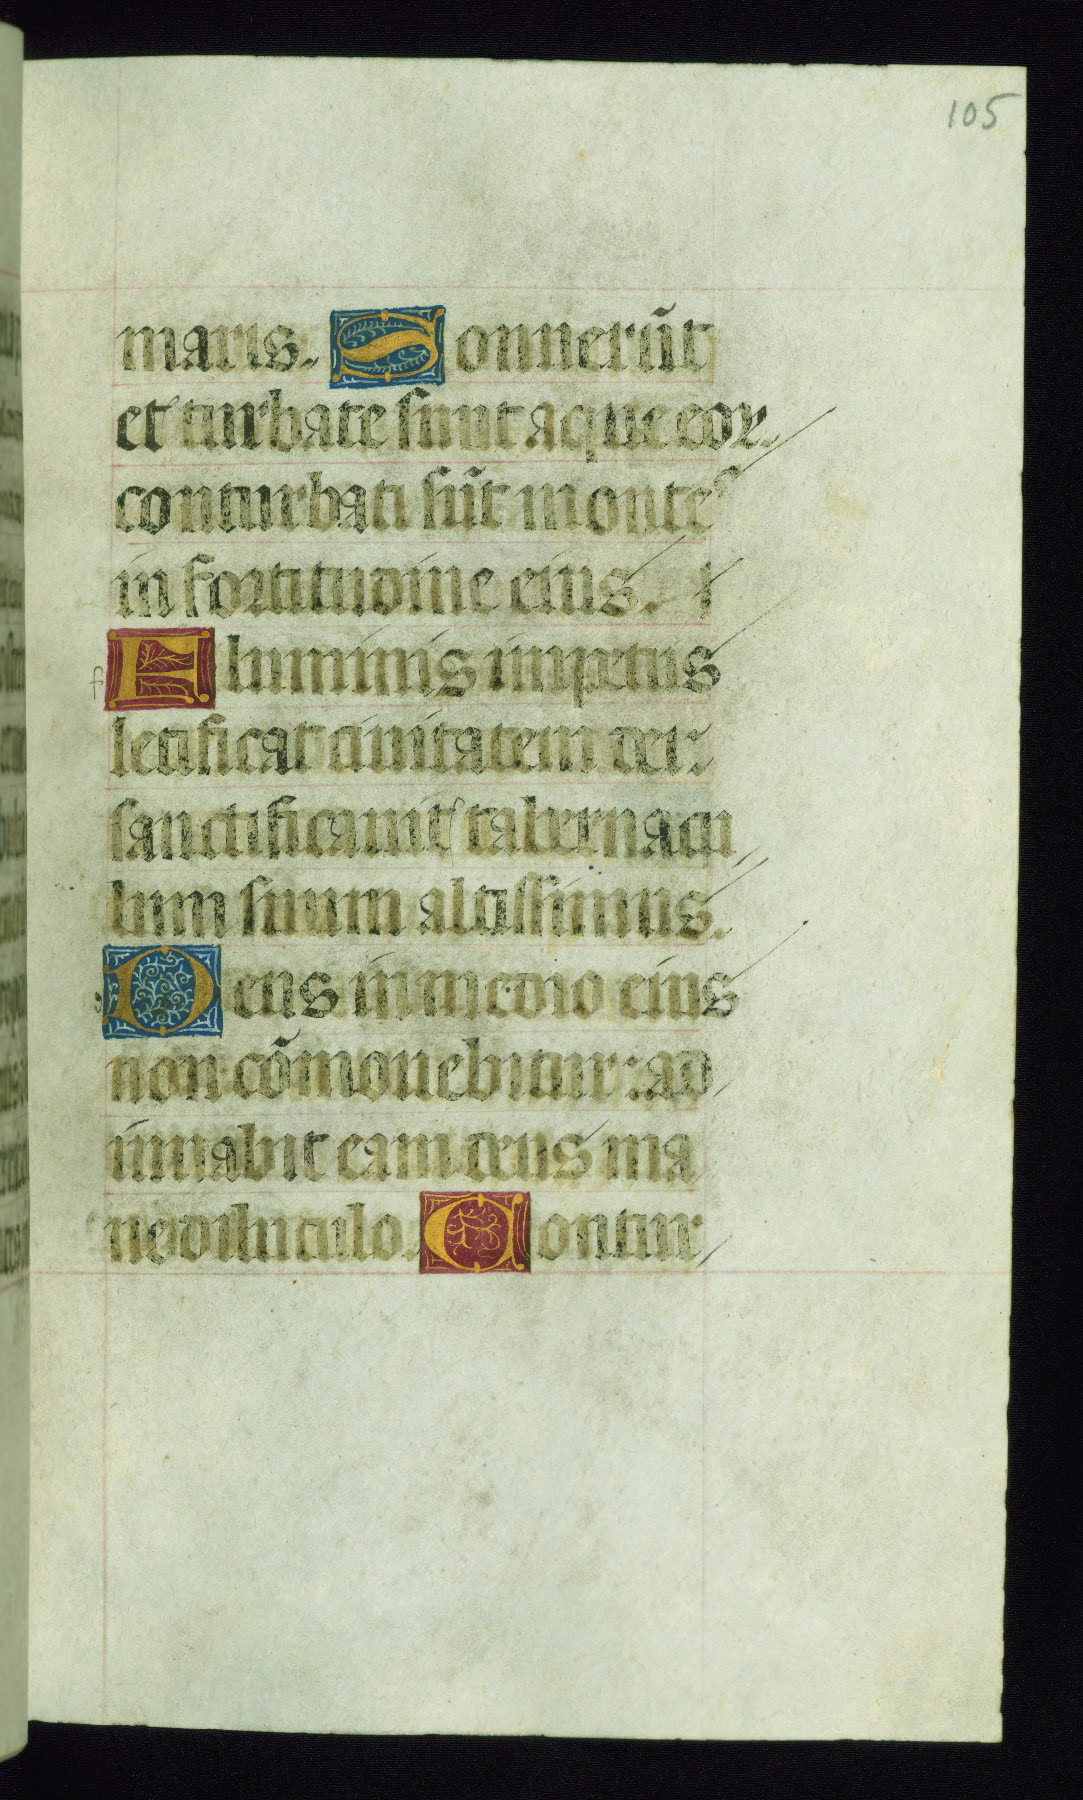 105
maris. Sonnerũt
et turbate sunt aque eoꝝ.
conturbati sũt montes
in fortitudine eius.
f Fluminis impetus
letificat ciuitatem dei:
sanctificauit tabernacu
lum suum altissimus.
Deus in medio eius
non cõmouebitur: ad
iuuabit eam deus ma
ne diluculo. Contur